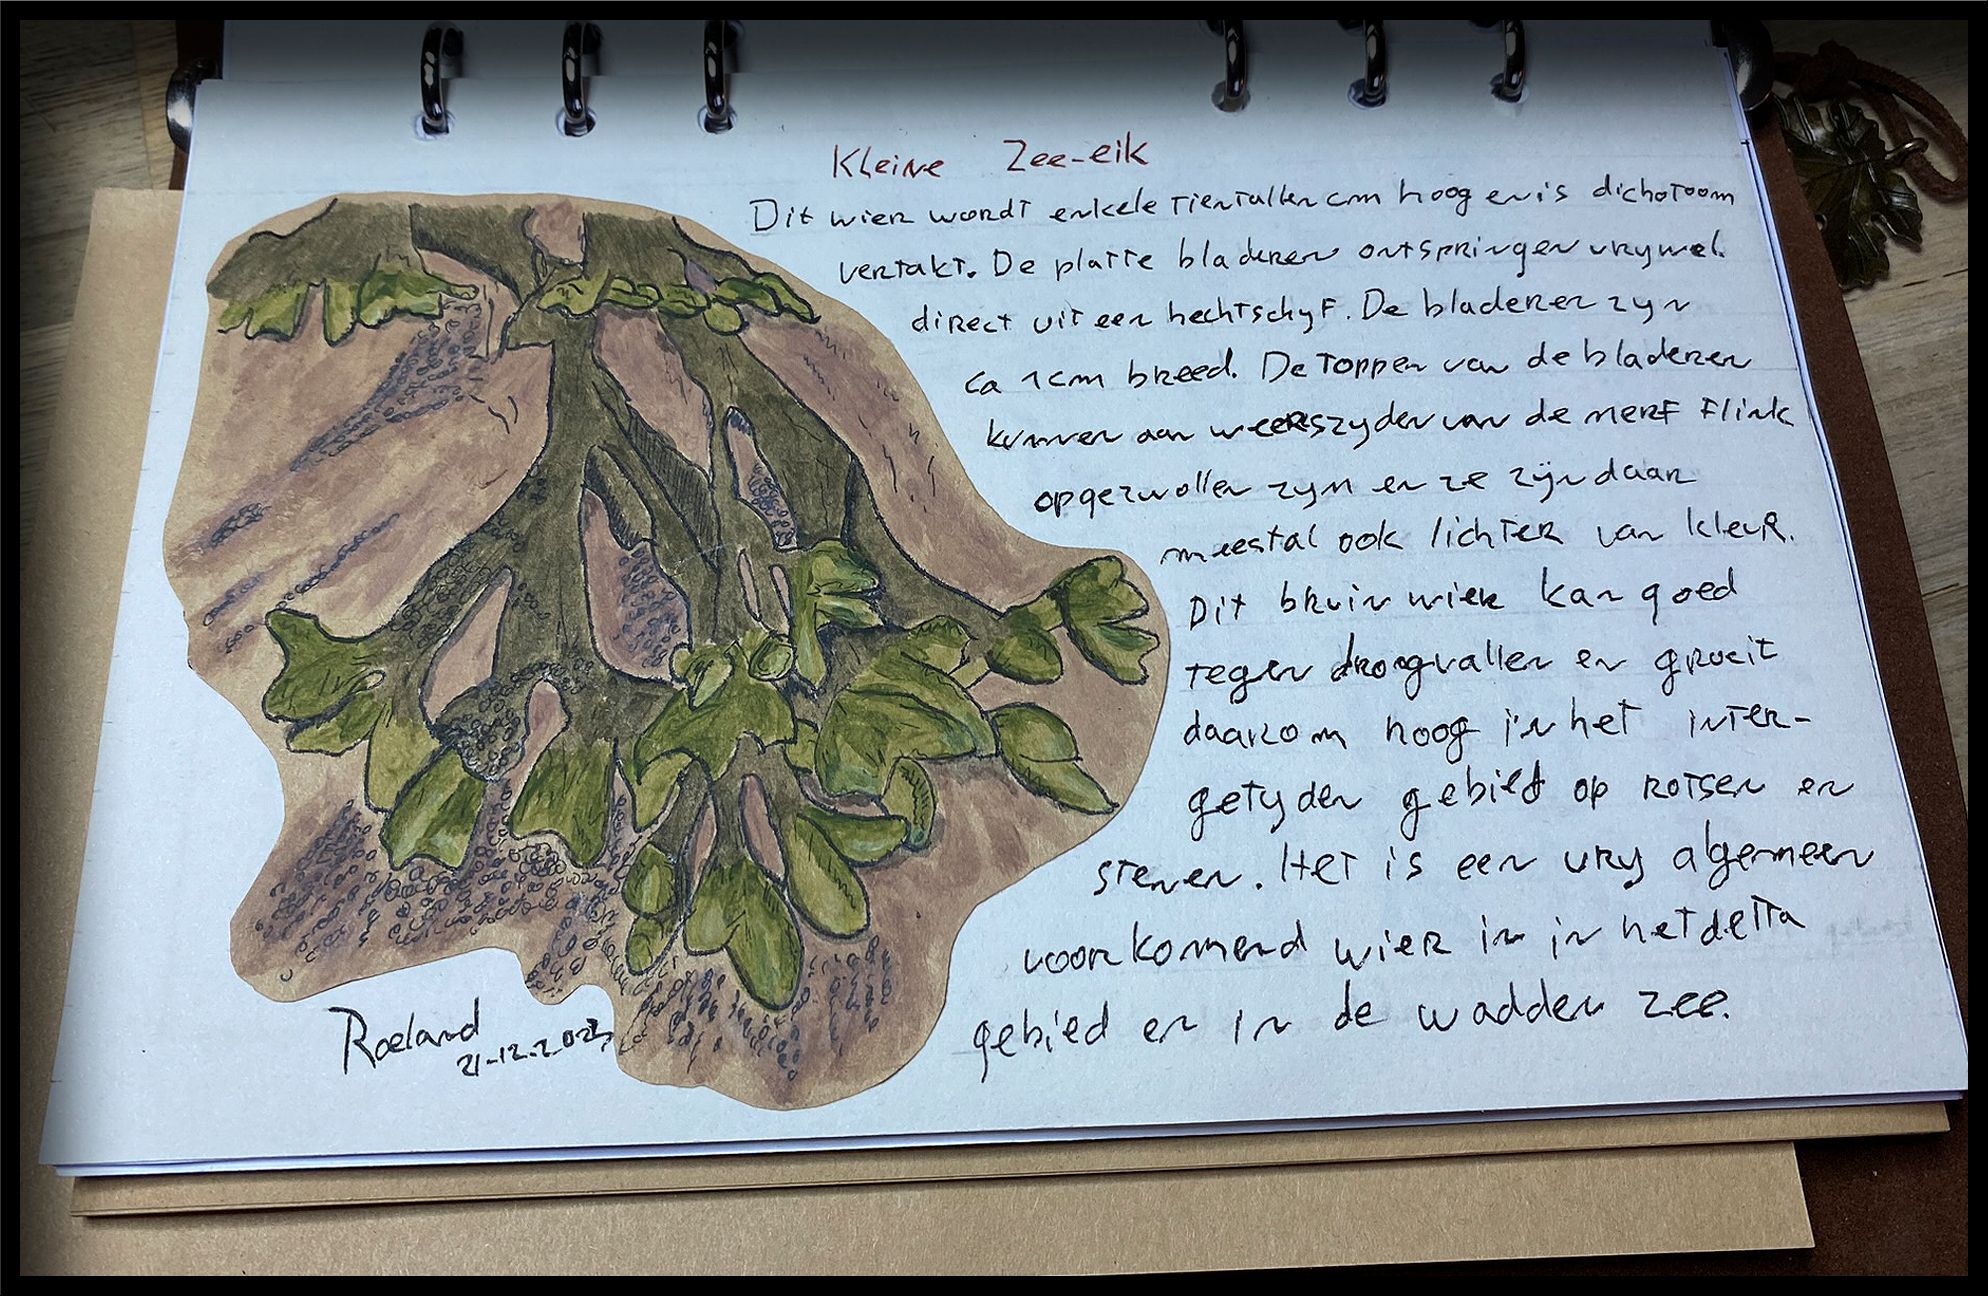 Kleine Zee-eik
Dit wier wordt enkele tientallen cm hoog en is dichotoom
vertakt. De platte bladeren ontspringen vrywel
direct uit een hechtschyf. De bladeren zyn
ca 1cm breed. De toppen van de bladeren
kunnen aan weerszyden van de nerf flink
opgezwollen zyn en ze zijn daar
meestal ook lichter van kleur.
Dit bruin wier kan goed
tegen droogvallen en groeit
daarom hoog in het inter-
getyden gebied op rotsen en
stenen. Het is een vry algemeen
voorkomend wier in in het delta
gebied en in de wadden zee.
Roeland
21-12-2023